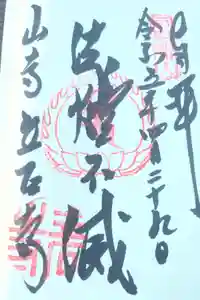 奉拝
令和五年四月二十九日
法燈不滅
山寺 立石寺